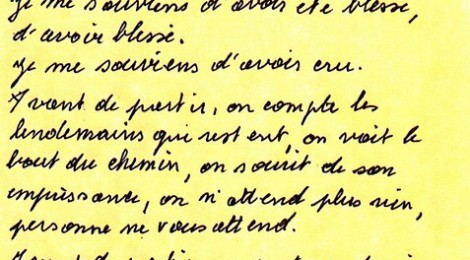 Je me souviens d'avoir été blessé,
d'avoir blessé.
Je me souviens d'avoir cru.
Avant de partir, on compte les
lendemains qui restent, on voit le
bout du chemin, on sourit de son
impuissance, on n'attend plus rien,
personne ne vous attend.
Avant de partir